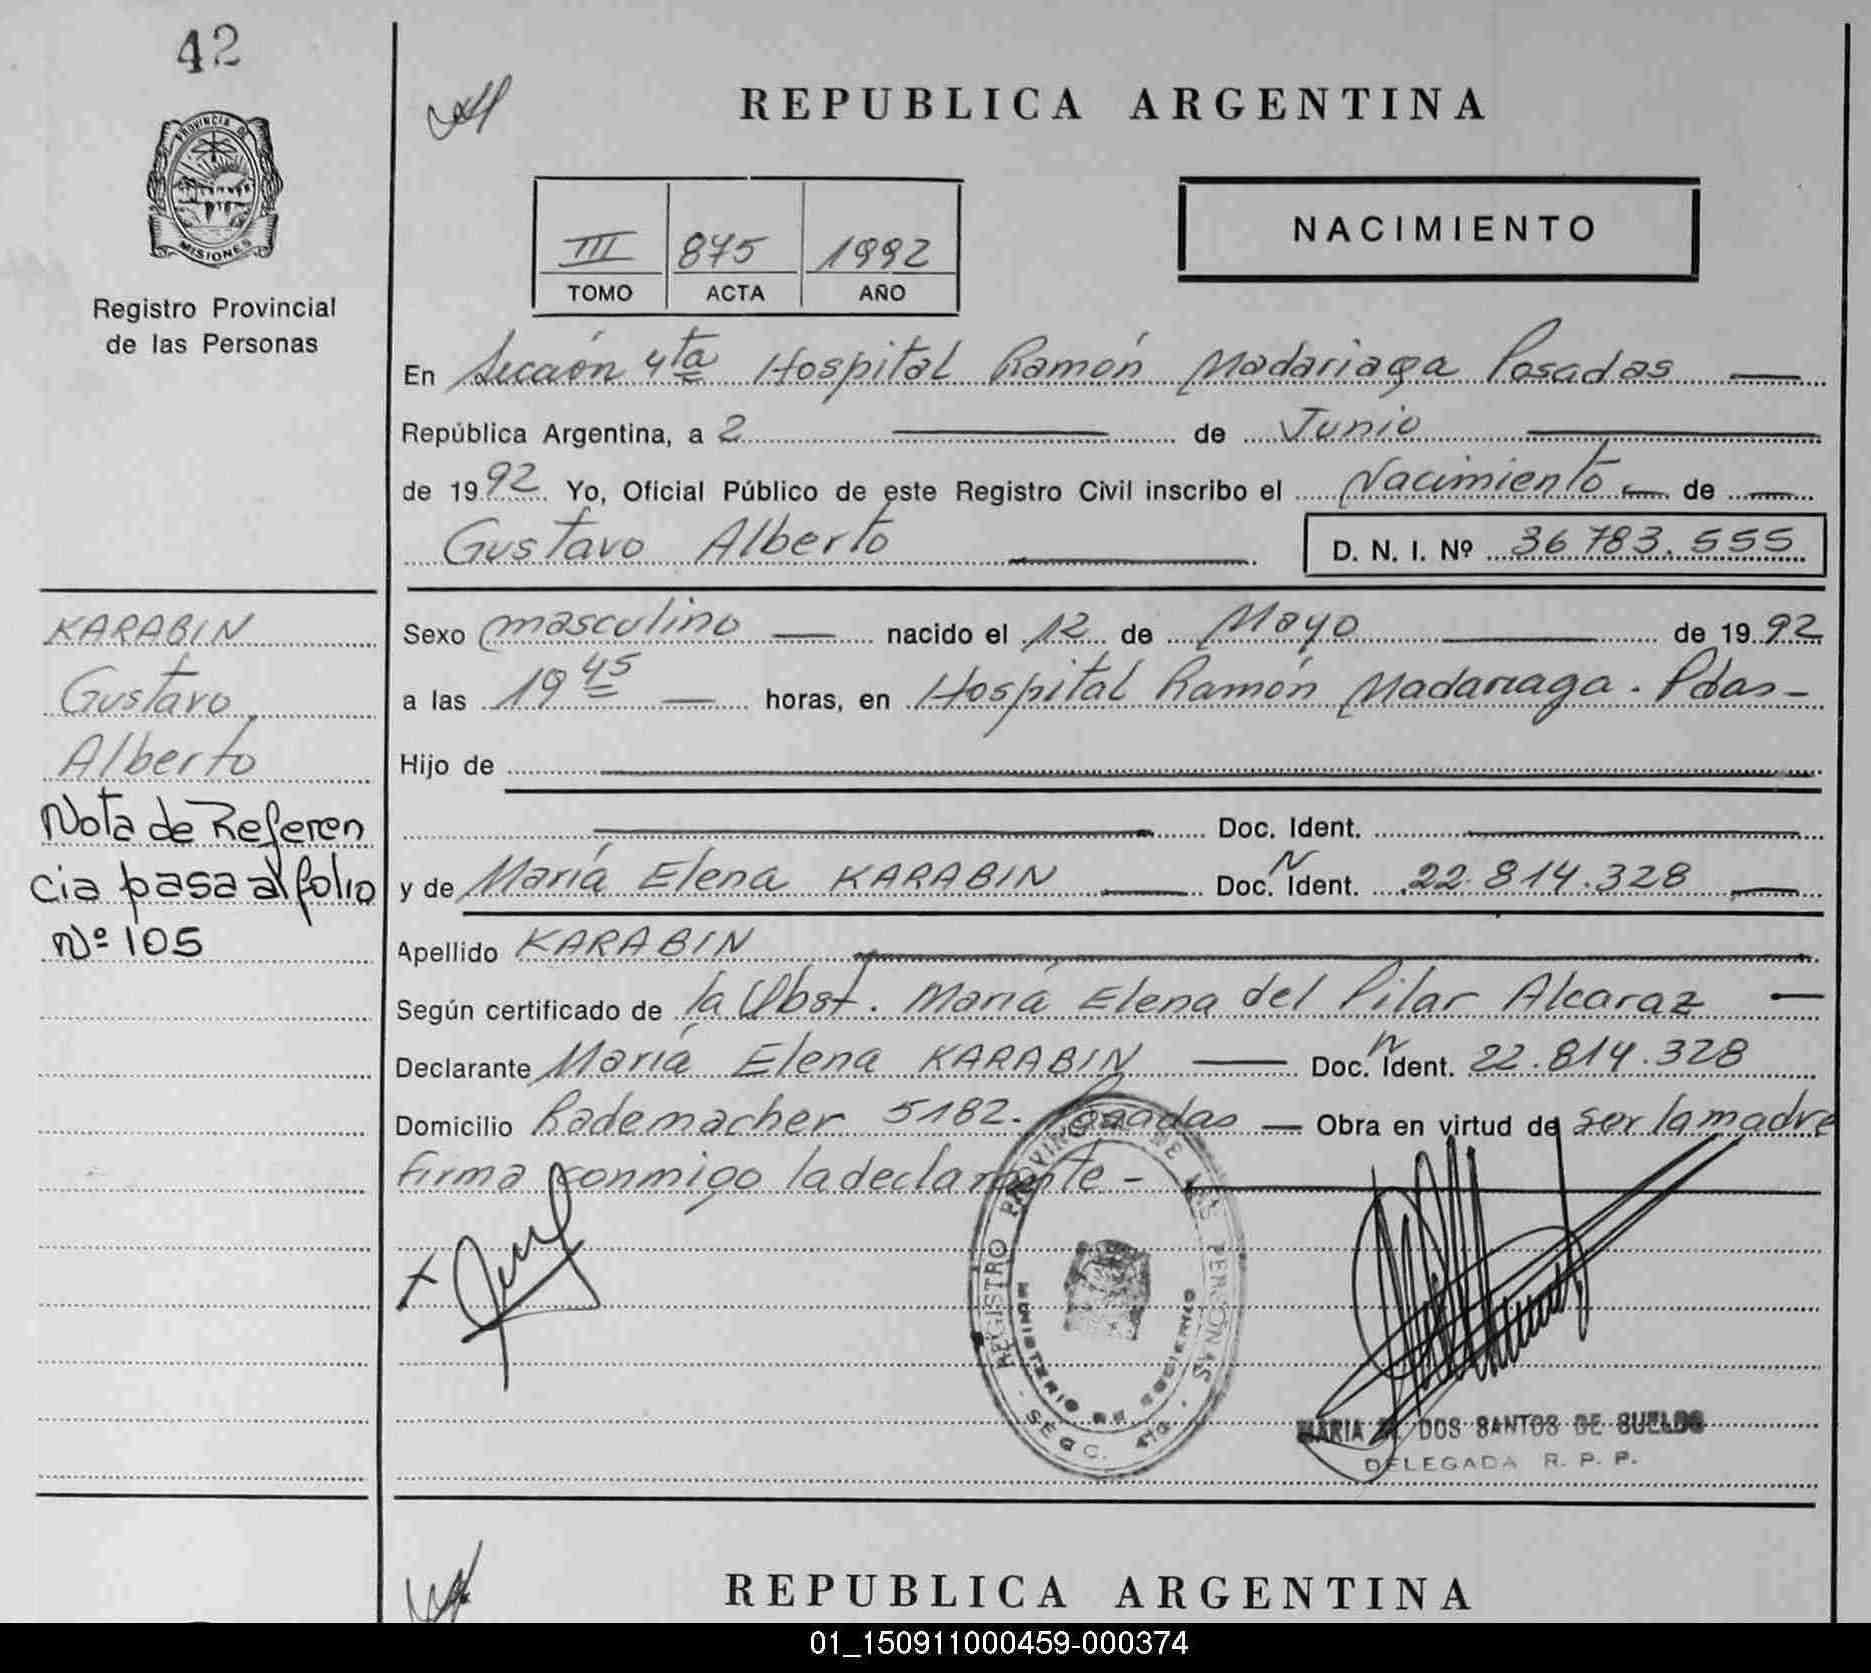 42
PROVINCIA DE
MISIONES
Registro Provincial
de las Personas
REPUBLICA ARGENTINA
III 875 1992
TOMO ACTA AÑO
NACIMIENTO
En Sección 4ta Hospital Ramón Madariaga Posadas
República Argentina, a 2 de Junio
de 1992 Yo, Oficial Público de este Registro Civil inscribo el Nacimiento de
Gustavo Alberto D. N. I. Nº 36.783.555
KARABIN
Gustavo
Alberto
Nota de Referen
cia pasa al folio
Nº 105
Sexo masculino nacido el 12 de Mayo de 1992
a las 19 45 horas, en Hospital Ramón Madariaga. Pdas-
Hijo de
Doc. Ident.
y de María Elena KARABIN Doc. N Ident. 22.814.328
Apellido KARABIN
Según certificado de la Obst. María Elena del Pilar Alcaraz
Declarante María Elena KARABIN Doc. N Ident. 22.814.328
Domicilio Rademacher 5182. Posadas — Obra en virtud de ser la madre
firma conmigo la declarante -
REGISTRO PROVINCIAL DE LAS PERSONAS
MINISTERIO DE GOBIERNO
MARIA DOS SANTOS DE
DELEGADA R. P. P.
REPUBLICA ARGENTINA
01_150911000459-000374